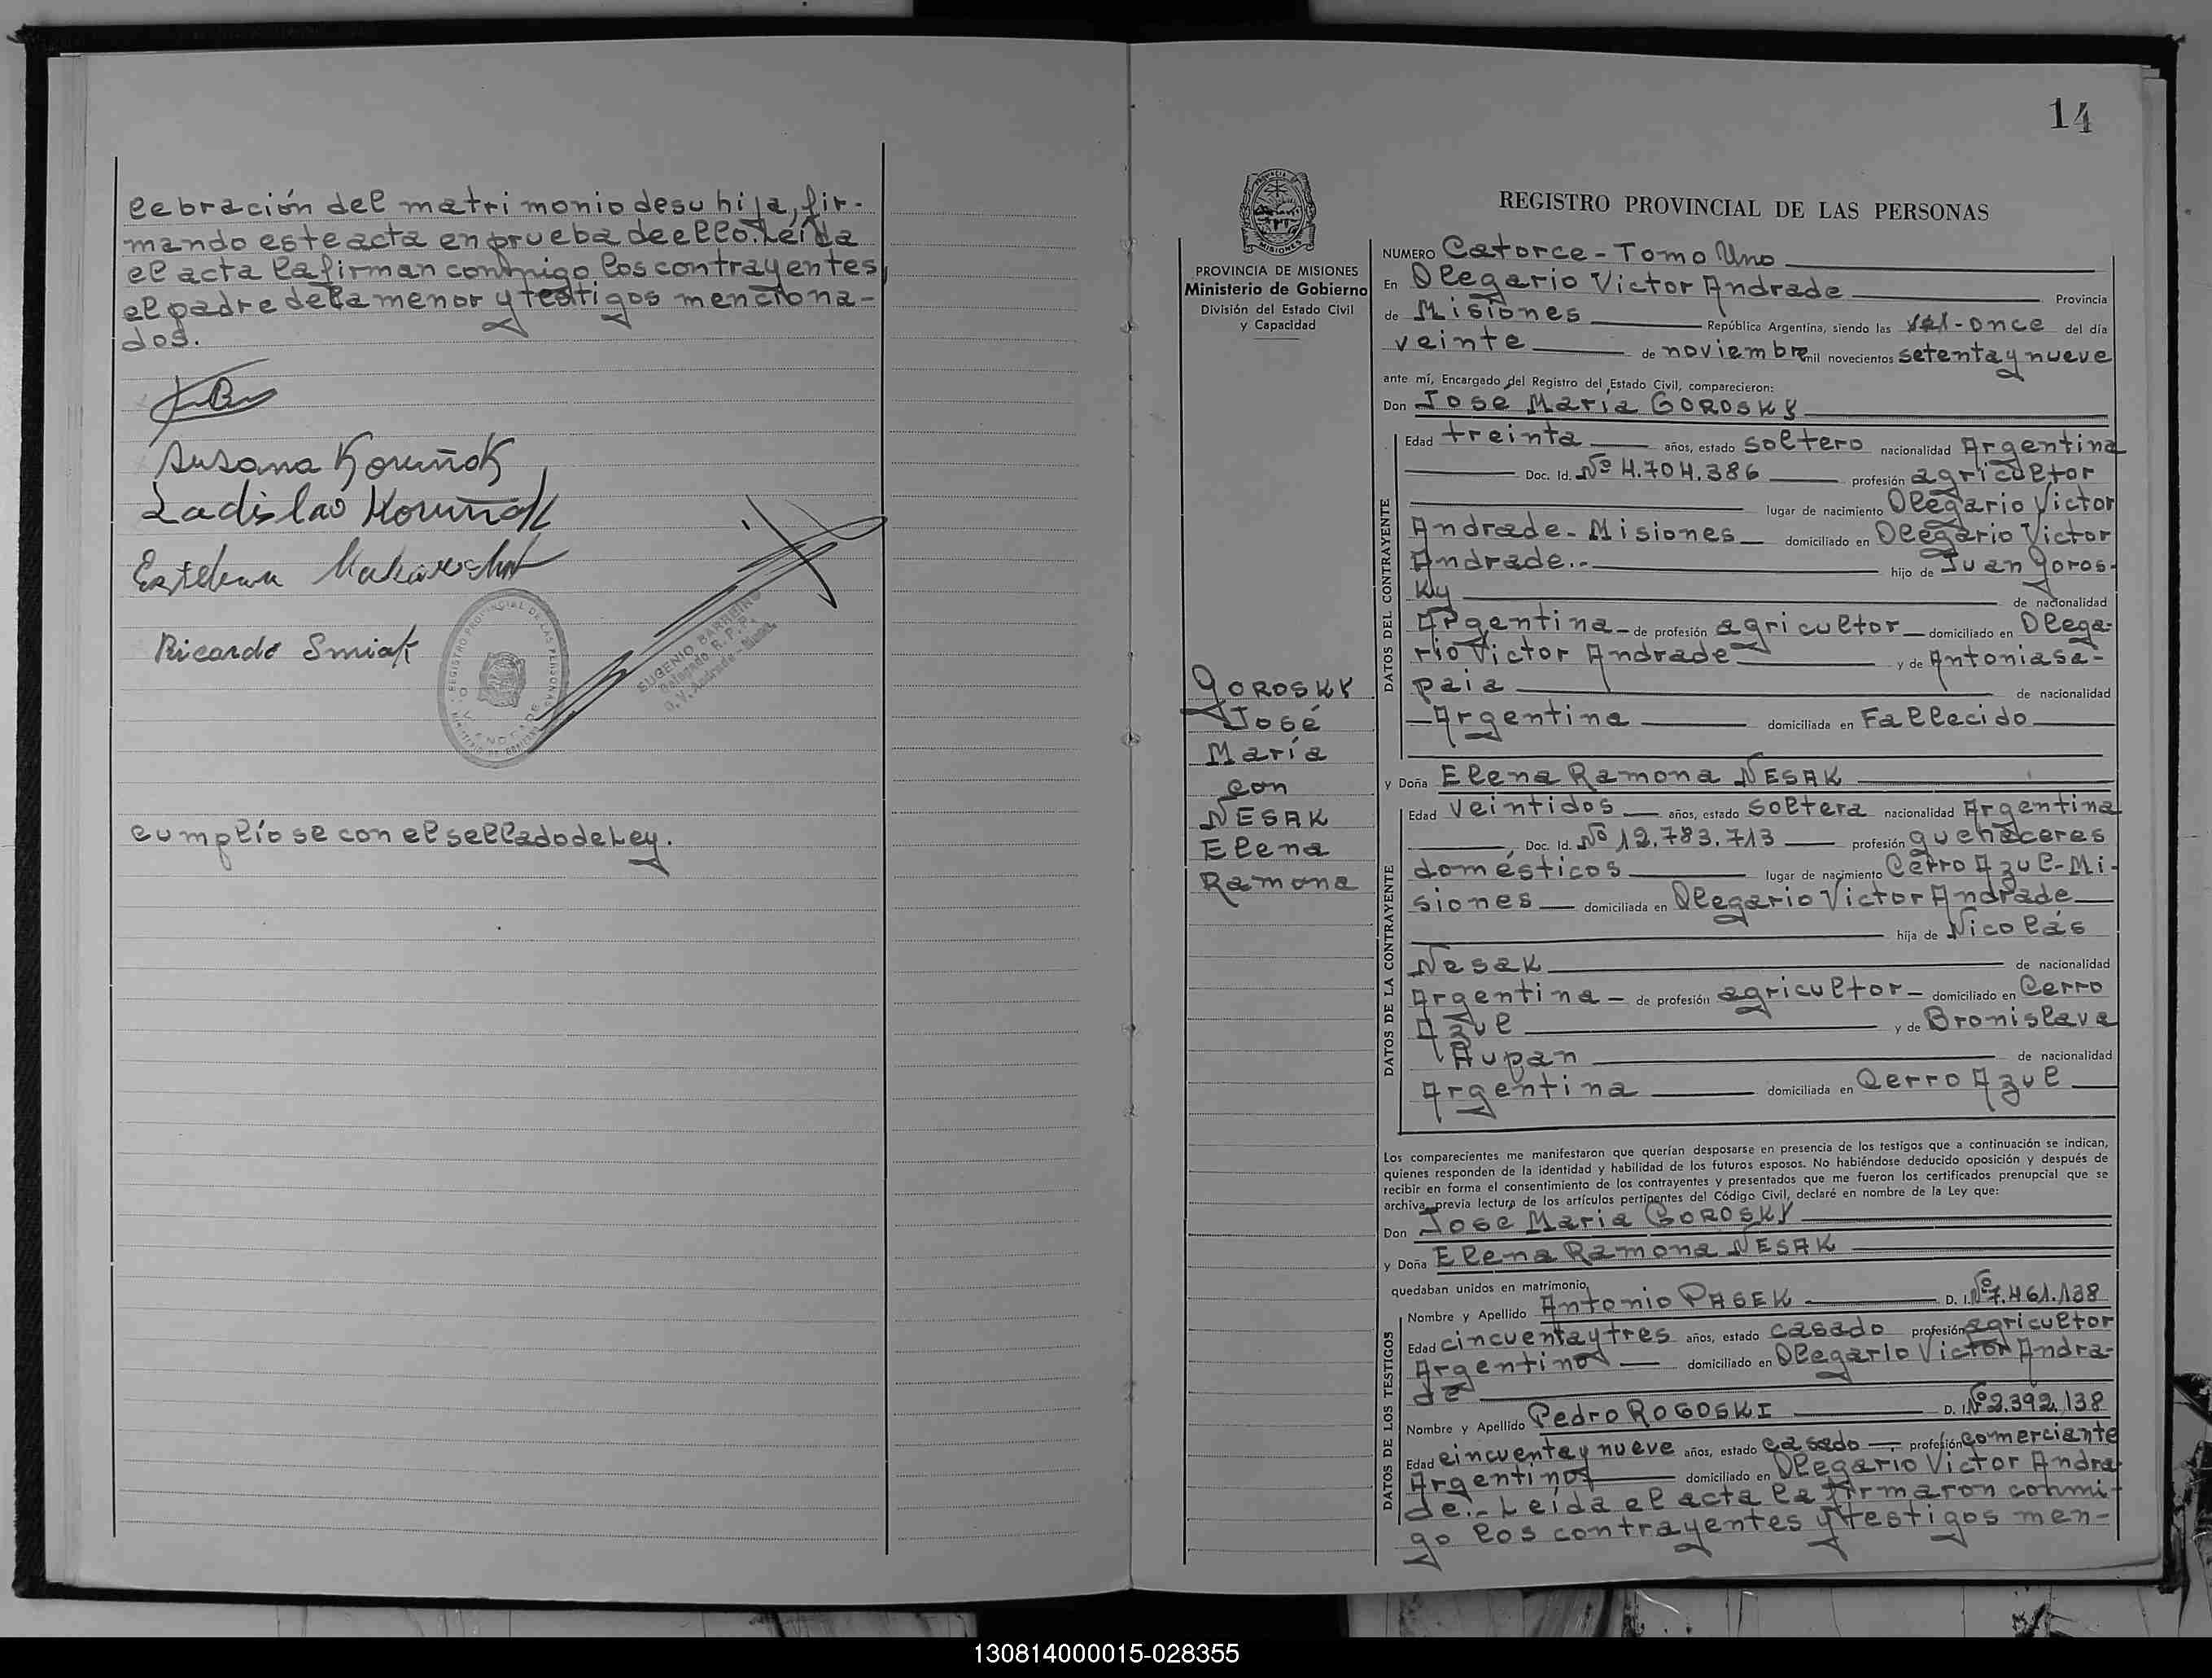 lebración del matrimonio de su hija, fir-
mando este acta en prueba de ello. Leída
el acta la firman conmigo los contrayentes,
el padre de la menor y testigos menciona-
dos.
Susana Koruñok
Ladislao Koruñak
Esteban
Ricardo Smiak
REGISTRO PROVINCIAL DE LAS PERSONAS
EUGENIO BARREIRO
Delegado R. P. P.
O. V. Andrade - Mnes.
cumplíose con el sellado de Ley.
14
PROVINCIA DE MISIONES
Ministerio de Gobierno
División del Estado Civil
y Capacidad
GOROSKY
José
María
con
NESAK
Elena
Ramona
REGISTRO PROVINCIAL DE LAS PERSONAS
NUMERO Catorce - Tomo Uno
En Olegario Victor Andrade Provincia
de Misiones República Argentina, siendo las - once del día
veinte de noviembre mil novecientos setenta y nueve
ante mí, Encargado del Registro del Estado Civil, comparecieron:
Don Jose María GOROSKY
DATOS DEL CONTRAYENTE
Edad treinta años, estado soltero nacionalidad Argentina
Doc. Id. Nº 4.704.386 profesión agricultor
lugar de nacimiento Olegario Victor
Andrade - Misiones domiciliado en Olegario Victor
Andrade.- hijo de Juan Goros-
ky de nacionalidad
Argentina - de profesión agricultor - domiciliado en Olega-
rio Victor Andrade y de Antonia Sa-
paia de nacionalidad
Argentina domiciliada en Fallecido
y Doña Elena Ramona NESAK
DATOS DE LA CONTRAYENTE
Edad veintidos años, estado soltera nacionalidad Argentina
Doc. Id. Nº 12.783.713 profesión quehaceres
domésticos lugar de nacimiento Cerro Azul - Mi-
siones domiciliada en Olegario Victor Andrade
hija de Nicolás
Nesak de nacionalidad
Argentina - de profesión agricultor - domiciliado en Cerro
Azul y de Bronislava
Aupan de nacionalidad
Argentina domiciliada en Cerro Azul
Los comparecientes me manifestaron que querían desposarse en presencia de los testigos que a continuación se indican,
quienes responden de la identidad y habilidad de los futuros esposos. No habiéndose deducido oposición y después de
recibir en forma el consentimiento de los contrayentes y presentados que me fueron los certificados prenupcial que se
archiva, previa lectura de los artículos pertinentes del Código Civil, declaré en nombre de la Ley que:
Don Jose Maria GOROSKY
y Doña Elena Ramona NESAK
quedaban unidos en matrimonio
DATOS DE LOS TESTIGOS
Nombre y Apellido Antonio PASEK D. I. Nº 7.461.138
Edad cincuenta y tres años, estado casado profesión agricultor
Argentino domiciliado en Olegario Victor Andra-
de
Nombre y Apellido Pedro ROGOSKI D. I. Nº 2.392.138
Edad cincuenta y nueve años, estado casado profesión comerciante
Argentino domiciliado en Olegario Victor Andra
de.- Leída el acta la firmaron conmi-
go los contrayentes y testigos men-
130814000015-028355